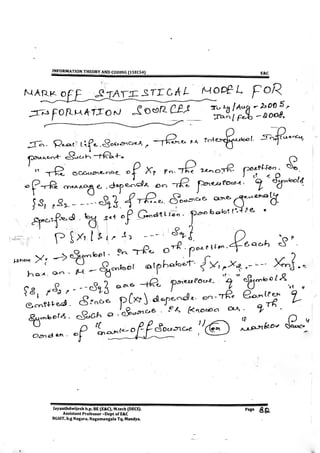 INFORMATION THEORY AND CODING (15EC54) E&C
MARKOFF STATISTICAL MODEL FOR
INFORMATION SOURCES July/Aug-2005,
Jan/Feb-2008.
In Real life Sources, There is intersymbol Influence
present Such that
" The occurence of Xi in The zeroth position
of The message depends on The previous q Symbols
{S1, S2, ---- Sq} These Source are generally
Specified by set of Condition probabilities
P{Xi | S1, S2 ---- Sq}
Where Xi → Symbol in The 0th position. Each S
has an M-Symbol alphabet {X1, X2, --- Xm},
{S1, S2, --- Sq} are The previous q Symbols
emitted. Since P(Xi) depends on The Earlier q
Symbols. Such a Source is Known as qTh
order of "markoff Source" (or) markov Source"
Jayanthdwijesh h.p. BE (E&C), M.tech (DECS).
Assistant Professor -Dept of E&C
BGSIT, b.g Nagara, Nagamangala Tq, Mandya.
Page